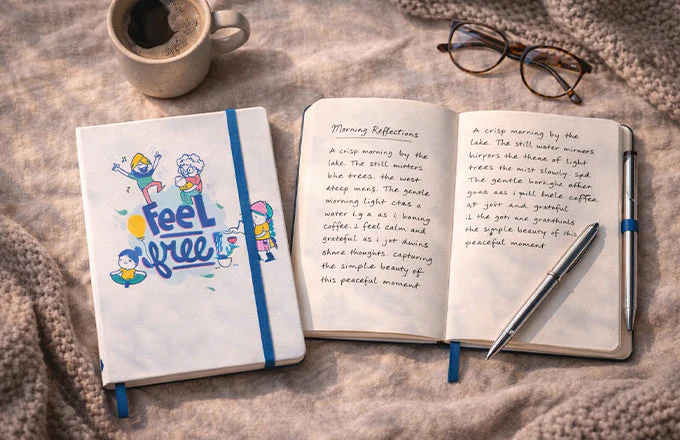 Feel
free!
Morning Reflections
A crisp morning by the
lake. The still minters
bhe trees. the wost
ateep mens. The gentle
morning light ctas a
water i.g a as i boning
coffee. I feel calm and
grateful as i jot dwins
shnre thoughts. capturing
the simple beauty of
this peaceful moment
A crisp morning by the
lake. The still water mirmers
hirpers the thene of light
trees the mist slowly. Spd
The gentle
coffee.
at joit and grateful
the simple beauty of this
peaceful moment